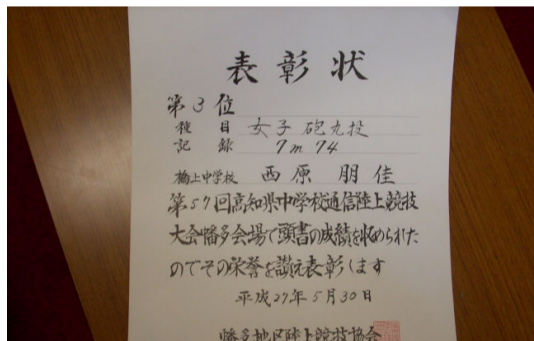 表彰状
第3位
種目 女子砲丸投
記録 7m74
橋上中学校 西原朋佳
第57回高知県中学校通信陸上競技
大会幡多会場で頭書の成績を収められた
のでその栄誉を讃え表彰します
平成27年5月30日
幡多地区陸上競技協会